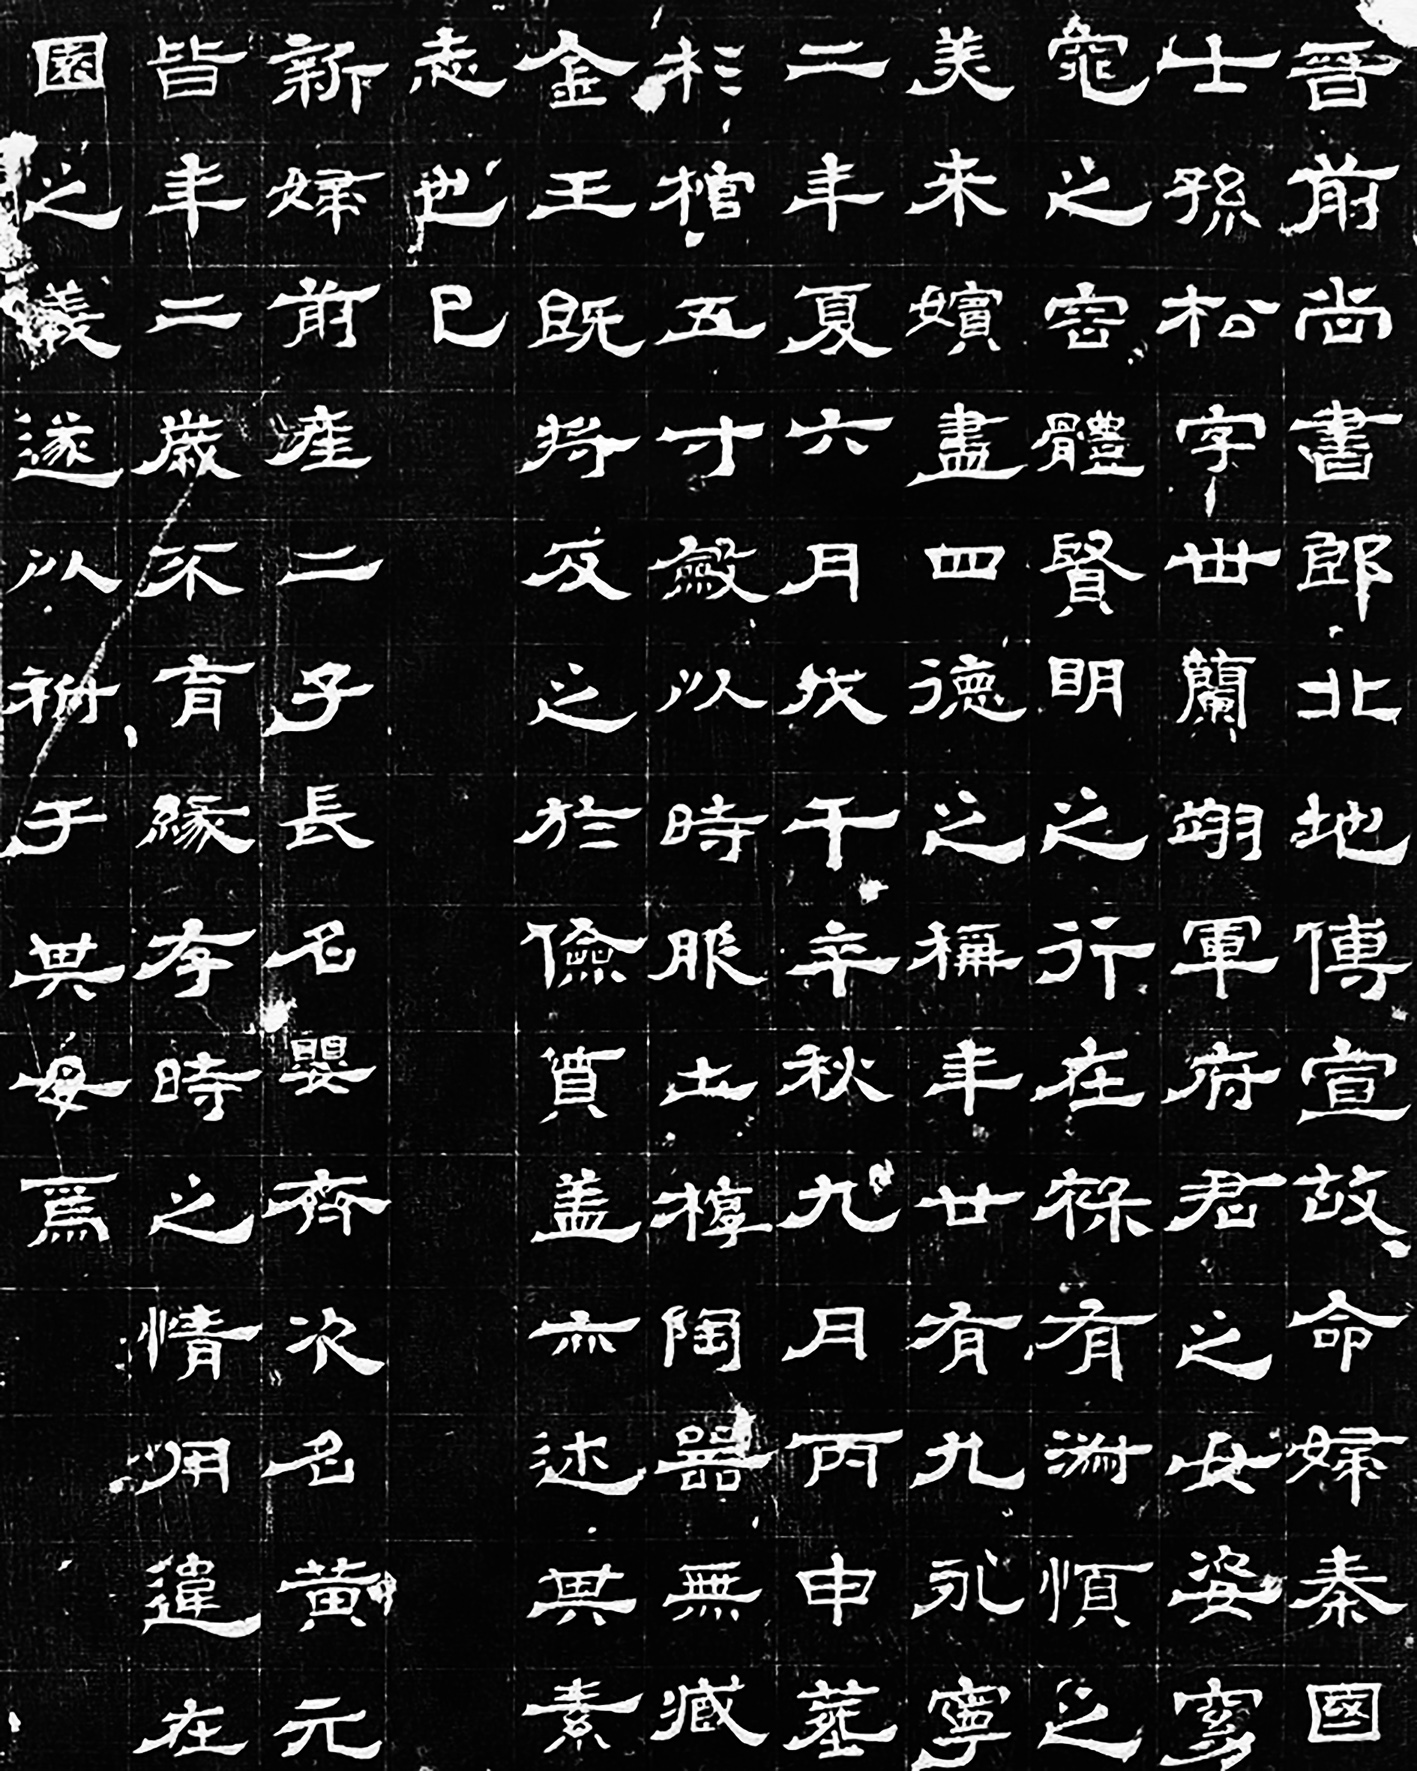 晉前尚書郎北地傅宣故命婦秦國
士孫松字世蘭翊軍府君之女姿窈
窕之容體賢明之行在祿有淑順之
美來嬪盡四德之稱年廿有九永寧
二年夏六月戊午卒秋九月丙申葬
杉棺五寸斂以時服土槨陶器無臧
金玉既將反之於儉質盖亦述其素
志也已
新婦前產二子長名嬰齊次名黃元
皆年二歲不育緣存時之情用違在
園之義遂以祔于其母焉